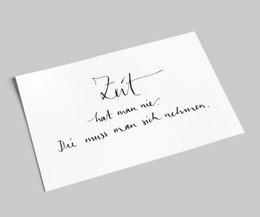 Zeit
hat man nie.
Die muss man sich nehmen.